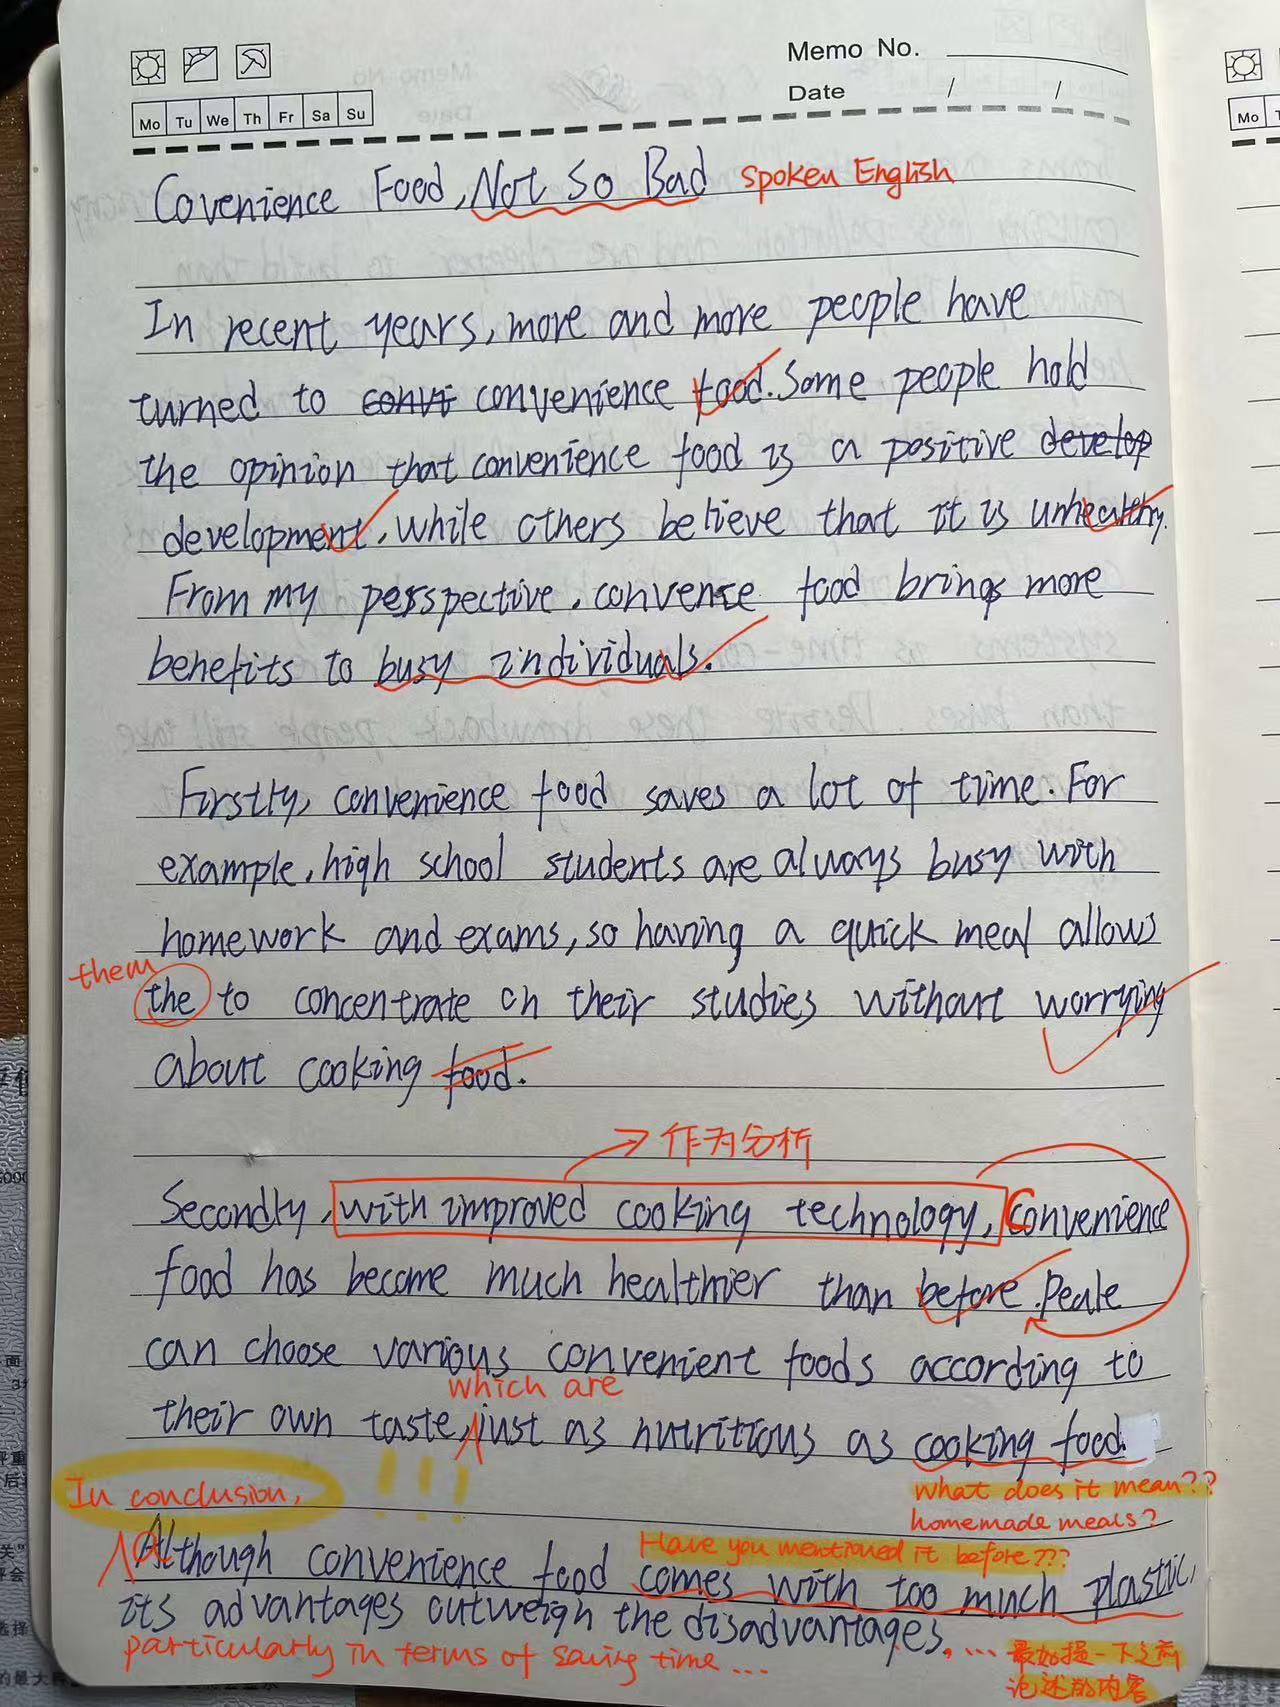 Memo No.
Date / /
Mo Tu We Th Fr Sa Su
Mo
Covenience Food, Not So Bad spoken English
In recent years, more and more people have
turned to convi convenience food. Some people hold
the opinion that convenience food is a positive develop
development, while others believe that it is unhealthy.
From my perspective, convence food brings more
benefits to busy individuals.
Firstly, convenience food saves a lot of time. For
example, high school students are always busy with
homework and exams, so having a quick meal allows
them
the to concentrate on their studies without worrying
about cooking food.
→作为分析
Secondly, with improved cooking technology, Convenience
food has become much healthier than before. Peale
can choose various convenient foods according to
which are
their own taste, just as nutritious as cooking food.
In conclusion, !!!
what does it mean??
homemade meals?
Have you mentioned it before???
Although convenience food comes with too much plastic,
its advantages outweigh the disadvantages.
particularly in terms of saving time ...
.... 最好提一下之前
论述的内容